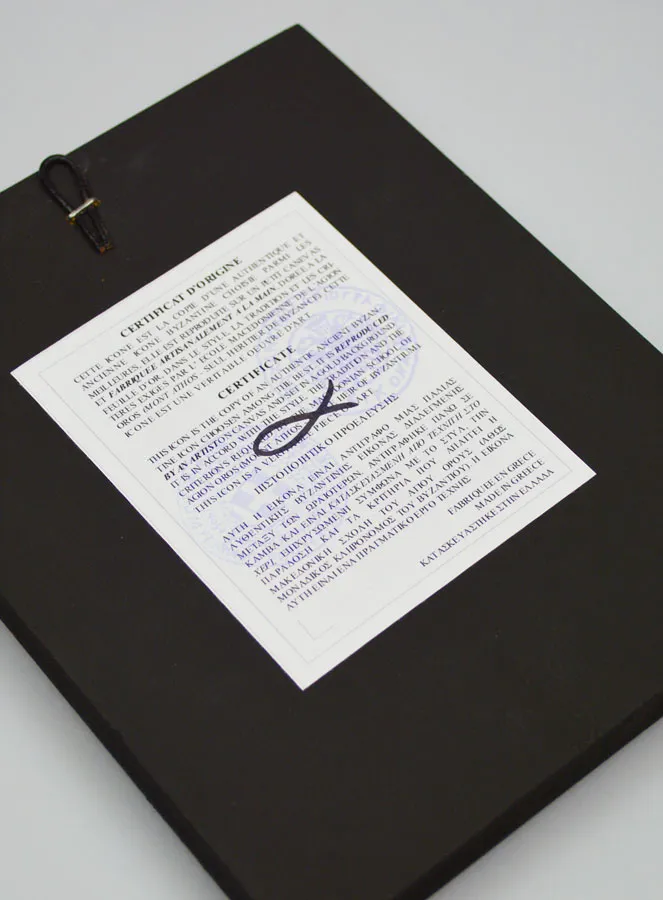 CERTIFICAT D'ORIGINE
CETTE ICONE EST LA COPIE D'UNE AUTHENTIQUE ET
ANCIENNE ICONE BYZANTINE CHOISIE PARMI LES
MEILLEURES. ELLE EST REPRODUITE SUR UN PETIT CANEVAS
ET FABRIQUEE ARTISANALEMENT A LA MAIN, DOREE A LA
FEUILLE D'OR DANS LE STYLE, LA TRADITION ET LES CRI-
TERES EXIGES PAR L'ECOLE MACEDONIENNE DE L'AGION
OROS (MONT ATHOS, SEUL HERITIER DE BYZANCE) CETTE
ICONE EST UNE VERITABLE OEUVRE D'ART.
CERTIFICATE
THIS ICON IS THE COPY OF AN AUTHENTIC ANCIENT BYZAN-
TINE ICON CHOOSES AMONG THE BEST. IT IS REPRODUCED
BY AN ARTIST ON CANVAS AND SET IN A GOLD BACKGROUND.
IT IS IN ACCORD WITH THE STYLE, THE TRADITION AND THE
CRITERIONS REQUIRED BY THE MACEDONIAN SCHOOL OF
AGION OROS (MOUNT ATHOS, HEIR OF BYZANTIUM)
THIS ICON IS A ART.
ΠΙΣΤΟΠΟΙΗΤΙΚΟ ΠΡΟΕΛΕΥΣΗΣ
ΑΥΤΗ Η ΕΙΚΟΝΑ ΕΙΝΑΙ ΑΝΤΙΓΡΑΦΟ ΜΙΑΣ ΠΑΛΙΑΣ
ΑΥΘΕΝΤΙΚΗΣ ΒΥΖΑΝΤΙΝΗΣ ΕΙΚΟΝΑΣ ΔΙΑΛΕΓΜΕΝΗΣ
ΜΕΤΑΞΥ ΤΩΝ ΩΡΑΙΟΤΕΡΩΝ. ΑΝΤΙΓΡΑΦΗΚΕ ΠΑΝΩ ΣΕ
ΚΑΜΒΑ ΚΑΙ ΕΙΝΑΙ ΚΑΤΑΣΚΕΥΑΣΜΕΝΗ ΑΠΟ ΤΕΧΝΙΤΗ ΣΤΟ
ΧΕΡΙ, ΕΠΙΧΡΥΣΩΜΕΝΗ ΣΥΜΦΩΝΑ ΜΕ ΤΟ ΣΤΥΛ, ΤΗΝ
ΠΑΡΑΔΟΣΗ ΚΑΙ ΤΑ ΚΡΙΤΗΡΙΑ ΠΟΥ ΑΠΑΙΤΕΙ Η
ΜΑΚΕΔΟΝΙΚΗ ΣΧΟΛΗ ΤΟΥ ΑΓΙΟΥ ΟΡΟΥΣ (ΑΘΩΣ
ΜΟΝΑΔΙΚΟΣ ΚΛΗΡΟΝΟΜΟΣ ΤΟΥ ΒΥΖΑΝΤΙΟΥ). Η ΕΙΚΟΝΑ
ΑΥΤΗ ΕΙΝΑΙ ΕΝΑ ΠΡΑΓΜΑΤΙΚΟ ΕΡΓΟ ΤΕΧΝΗΣ.
FABRIQUEE EN GRECE
MADE IN GREECE
ΚΑΤΑΣΚΕΥΑΣΤΗΚΕ ΣΤΗΝ ΕΛΛΑΔΑ